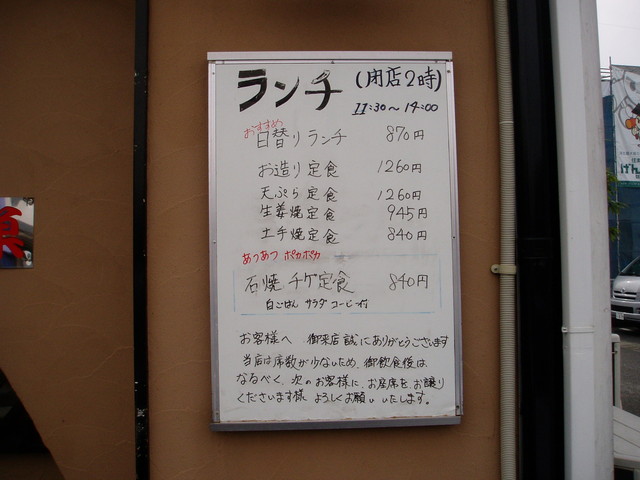 ランチ (閉店2時)
11:30〜14:00
おすすめ
日替りランチ 870円
お造り定食 1260円
天ぷら定食 1260円
生姜焼定食 945円
土手焼定食 840円
あつあつ ポカポカ
石焼 チゲ定食 840円
白ごはん サラダ コーヒー付
お客様へ 御来店誠にありがとうございます
当店は席数が少ないため、御飲食後は
なるべく、次のお客様に、お座席を、お譲り
くださいます様 よろしくお願いいたします。
げん